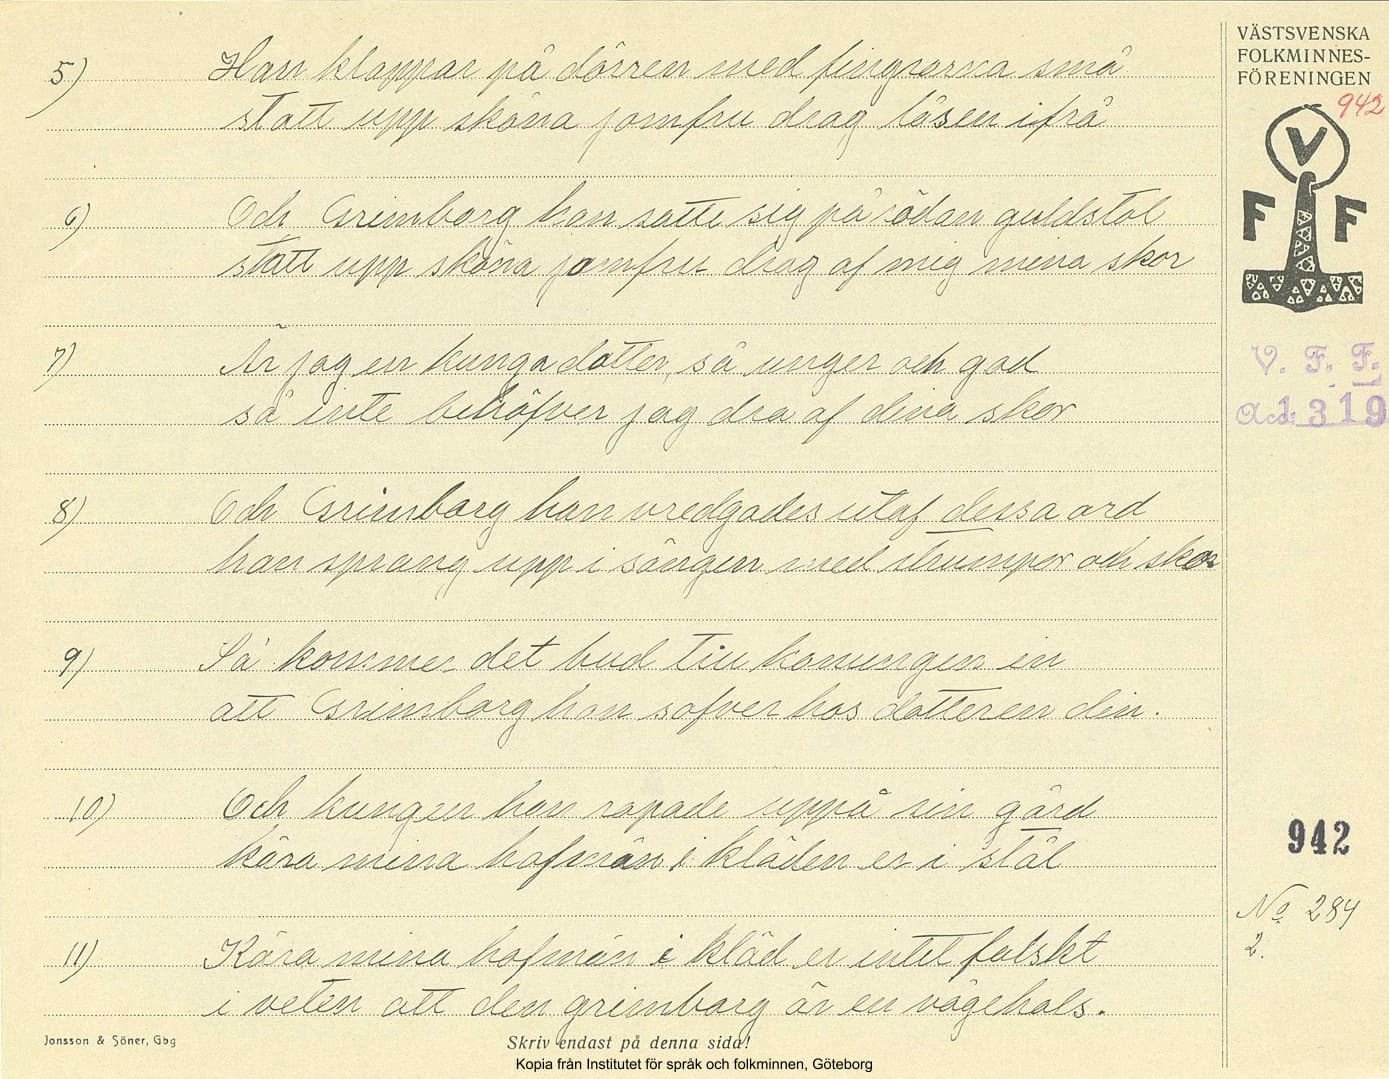 VÄSTSVENSKA
FOLKMINNES-
FÖRENINGEN
942
V
F F
V. F. F.
Acc. 1319
5) Han klappar på dörren med fingrarna små
statt upp sköna jomfru drag låsen ifrå
6) Och Grimborg han satte sig på rödan guldstol
statt upp sköna jomfru drag af mig mina skor
7) Är jag en kunga dotter, så unger och god
så inte behöfver jag dra af dina skor
8) Och Grimborg han vredgades utaf dessa ord
han sprang upp i sängen med strumpor och skor
9) Så kommer det bud till konungen in
att Grimborg han sofver hos dotteren din.
10) Och kungen han ropade uppå sin gård
kära mina hofmän i kläden er i stål
11) Kära mina hofmän i kläd er intet falskt
i veten att den grimborg är en vågehals.
942
No 284
2.
Jonsson & Söner, Gbg
Skriv endast på denna sida!
Kopia från Institutet för språk och folkminnen, Göteborg